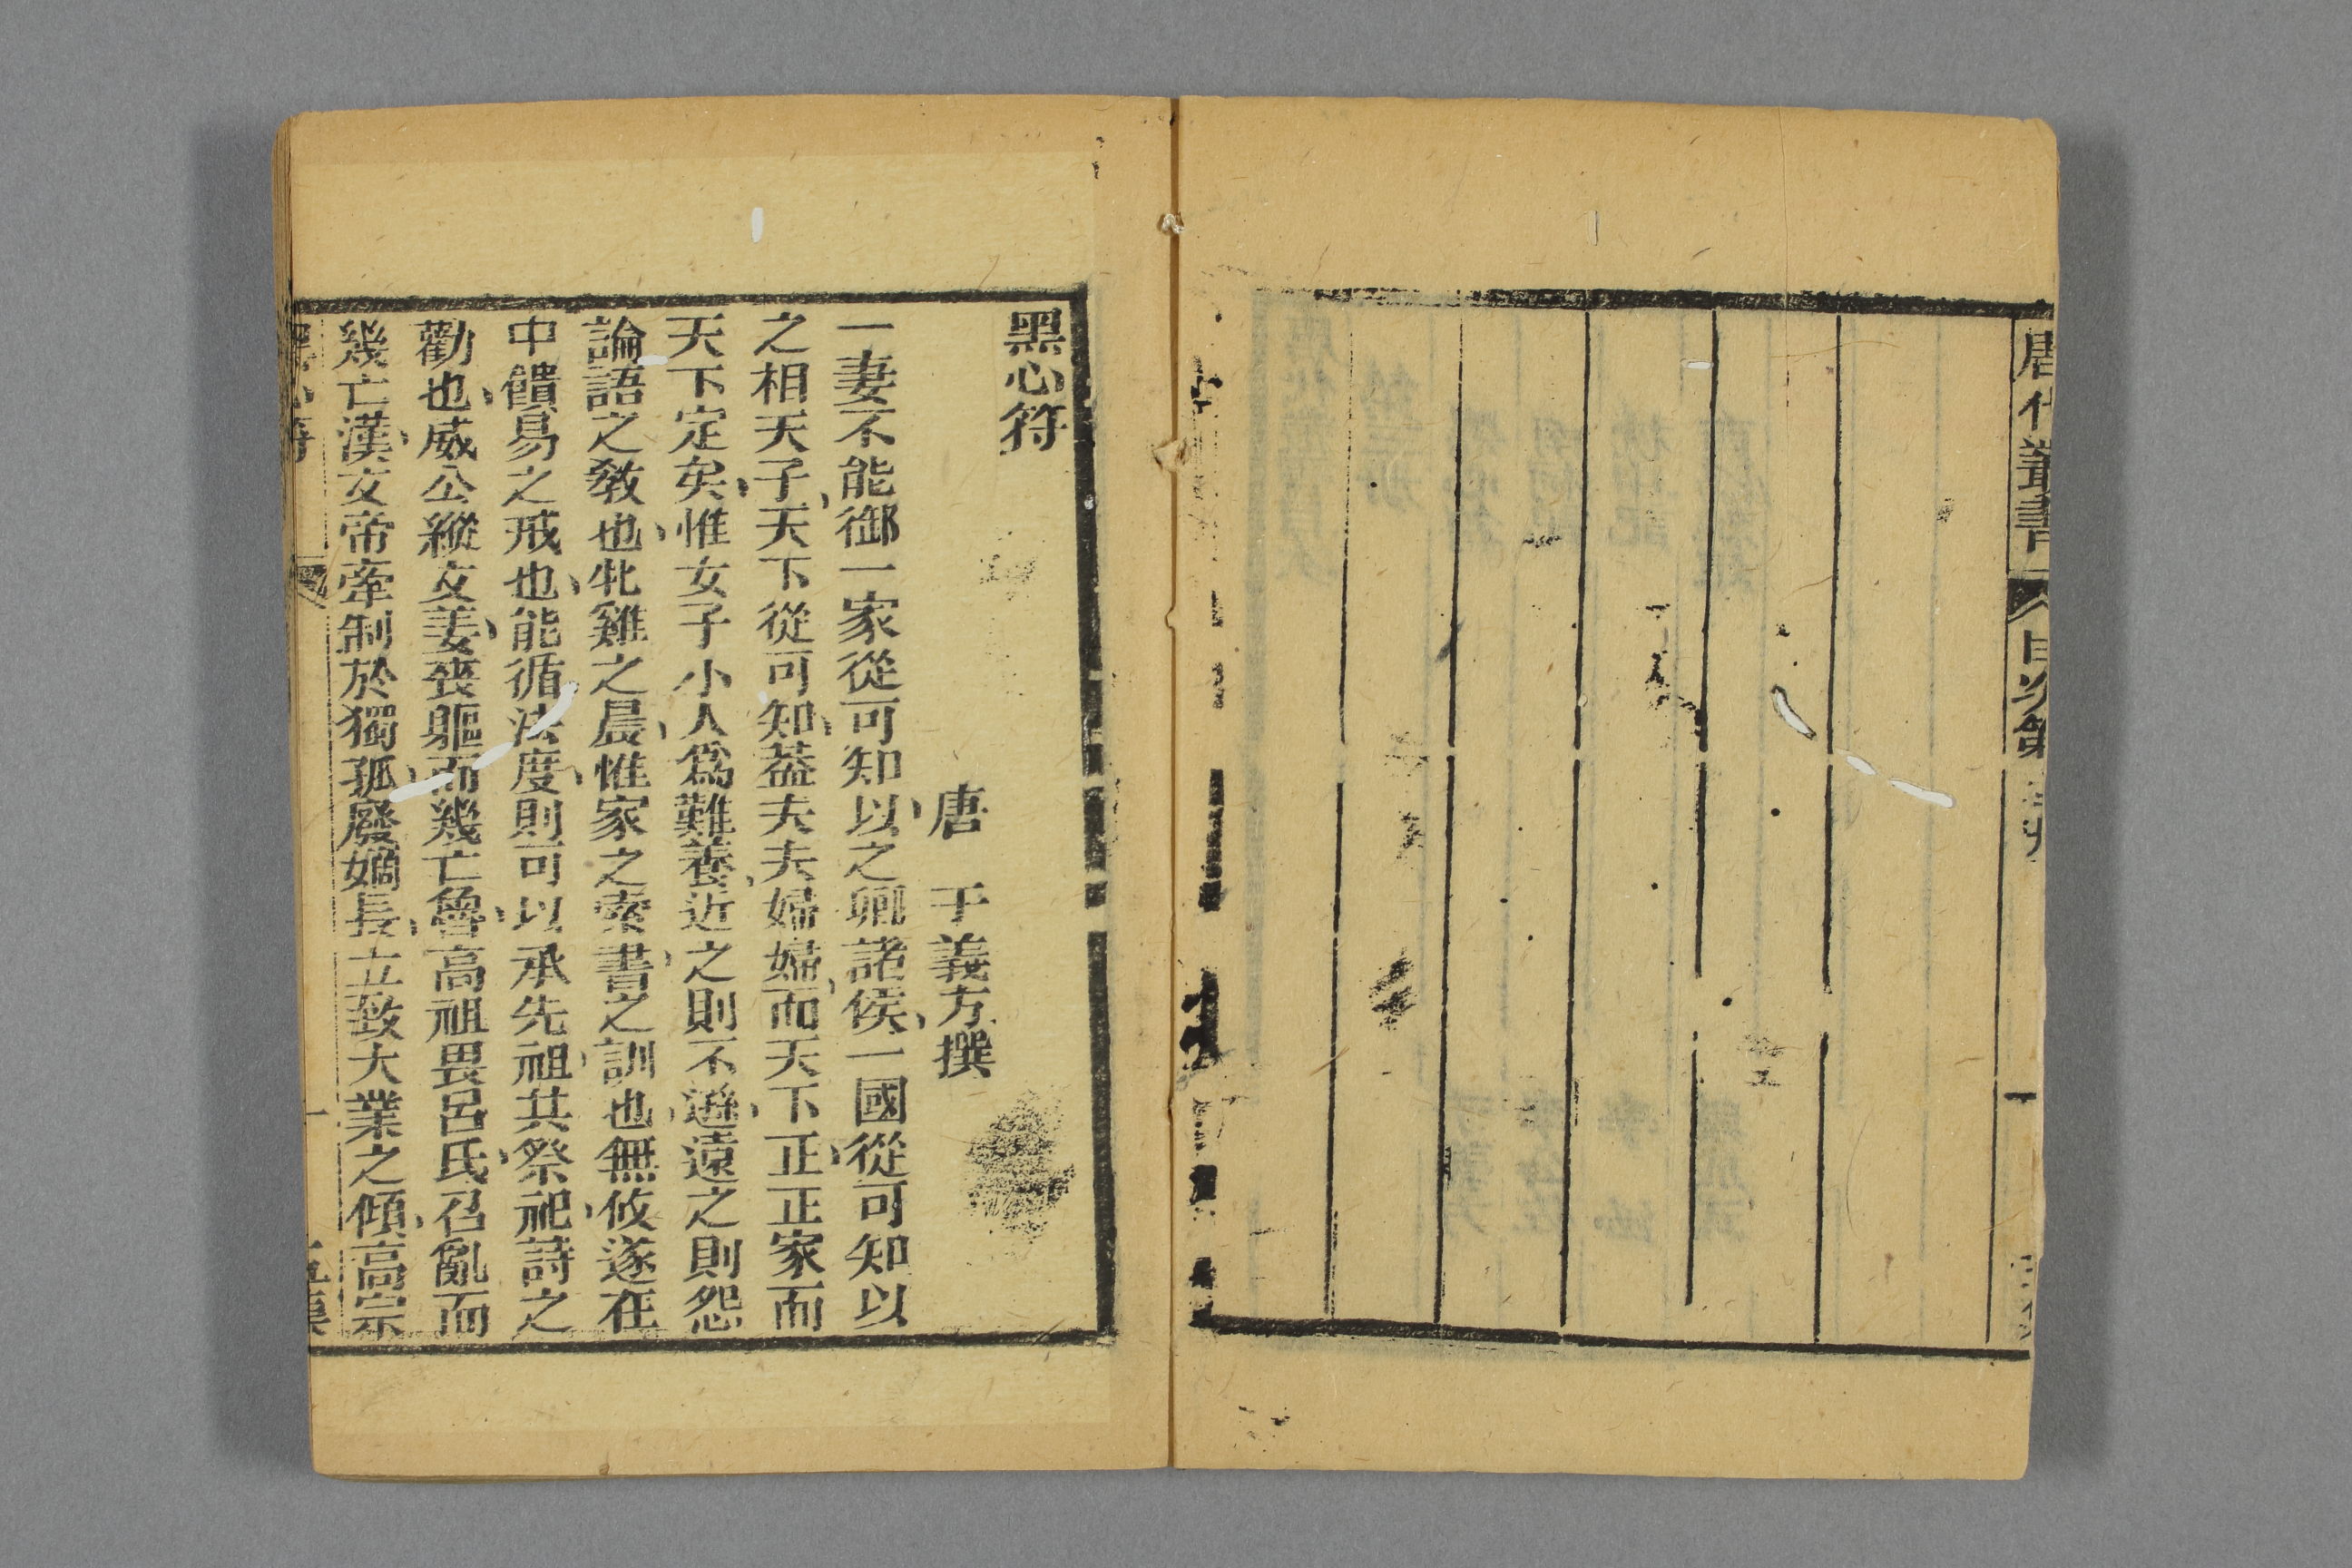 唐代叢書
目次第
一
黑心符
唐 于義方撰
一妻不能御一家從可知以之卿諸侯一國從可知以
之相天子天下從可知葢夫夫婦婦而天下正正家而
天下定矣惟女子小人爲難養近之則不遜遠之則怨
論語之敎也牝雞之晨惟家之索書之訓也無攸遂在
中饋易之戒也能循法度則可以承先祖共祭祀詩之
勸也威公縱文姜喪軀而幾亡魯高祖畏呂氏召亂而
幾亡漢文帝牽制於獨孤廢嫡長立致大業之傾高宗
黑心符
一